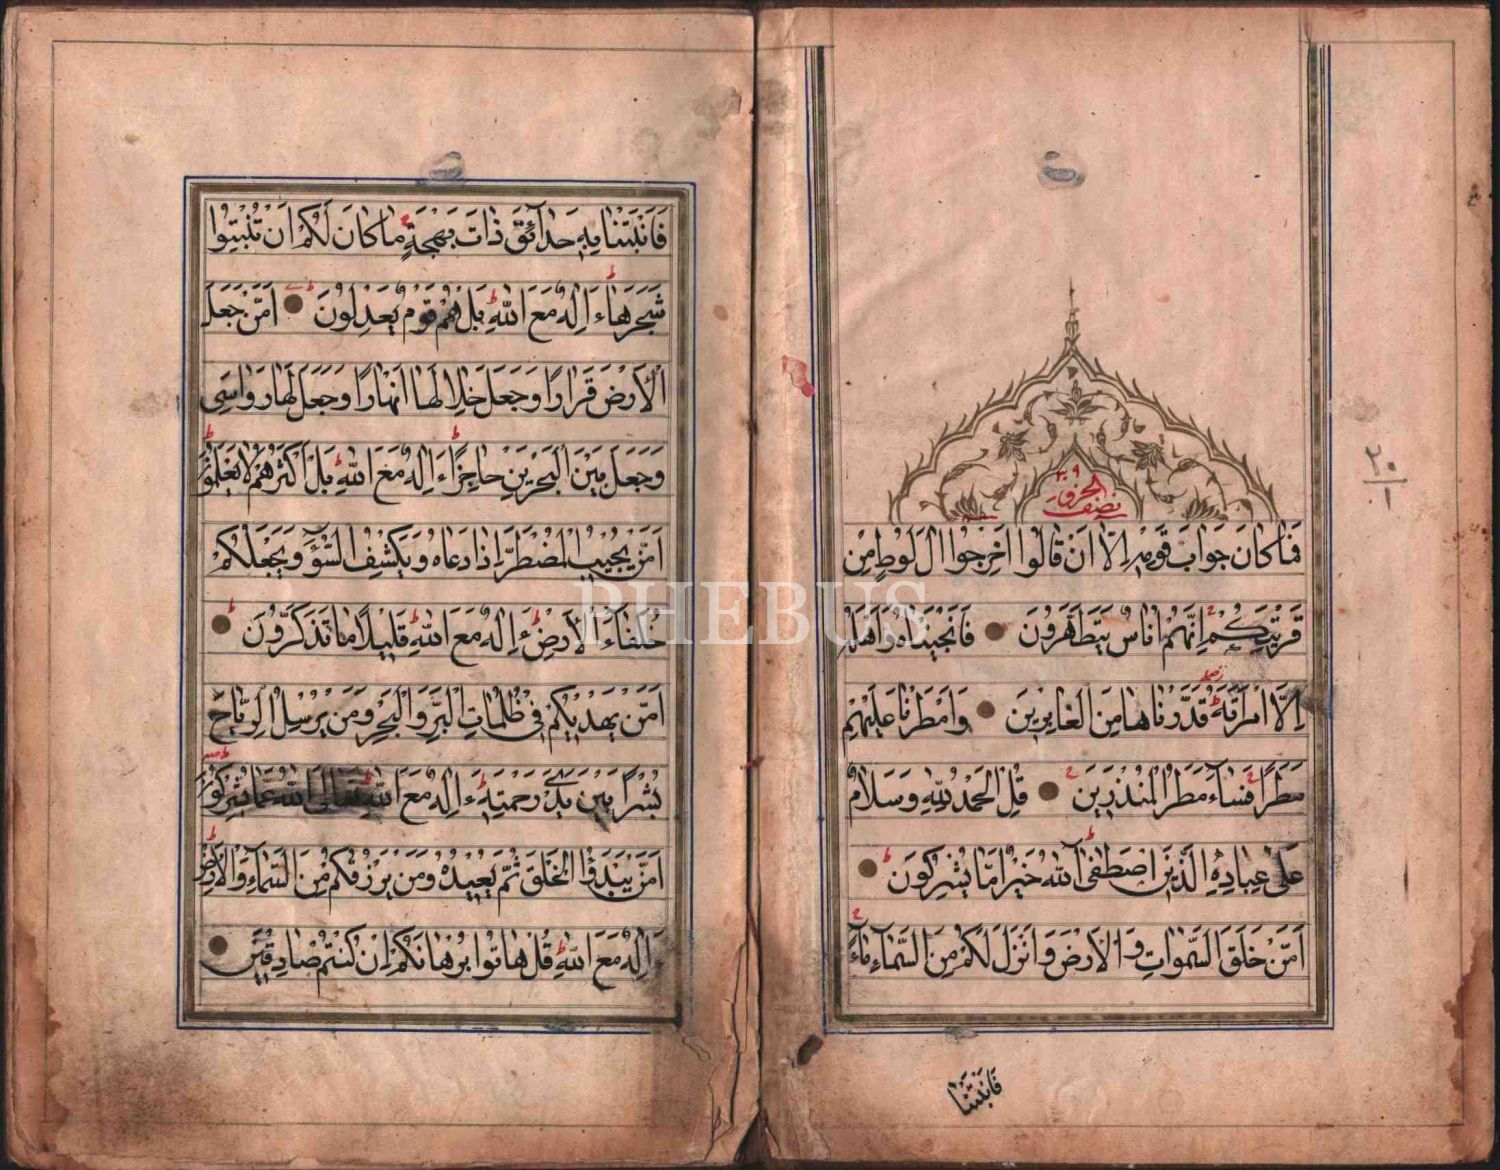 نصف الحزب
٣٩
فما كان جواب قومه الا ان قالوا اخرجوا ال لوط من
قريتكم انهم اناس يتطهرون فانجيناه واهله
الا امراته قدرناها من الغابرين وامطرنا عليهم
مطرا فساء مطر المنذرين قل الحمد لله وسلام
على عباده الذين اصطفى آلله خير اما يشركون
امن خلق السموات والارض وانزل لكم من السماء ماء
فانبتنا
٢٠
١
فانبتنا به حدائق ذات بهجة ما كان لكم ان تنبتوا
شجرها ءاله مع الله بل هم قوم يعدلون امن جعل
الارض قرارا وجعل خلالها انهارا وجعل لها رواسي
وجعل بين البحرين حاجزا ءاله مع الله بل اكثرهم لا يعلمون
امن يجيب المضطر اذا دعاه ويكشف السوء ويجعلكم
خلفاء الارض ءاله مع الله قليلا ما تذكرون
امن يهديكم في ظلمات البر والبحر ومن يرسل الرياح
بشرا بين يدي رحمته ءاله مع الله تعالى الله عما يشركون
امن يبدؤا الخلق ثم يعيده ومن يرزقكم من السماء والارض
ءاله مع الله قل هاتوا برهانكم ان كنتم صادقين
PHEBUS